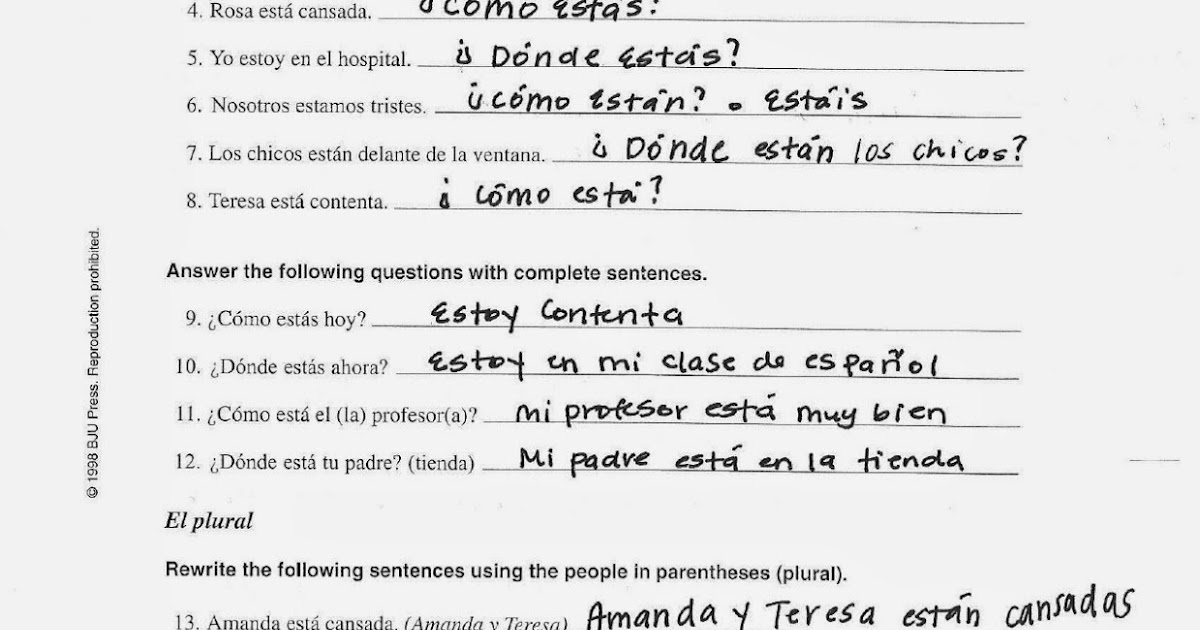 4. Rosa está cansada. ¿Cómo estás?
5. Yo estoy en el hospital. ¿Dónde estás?
6. Nosotros estamos tristes. ¿cómo están? o estáis
7. Los chicos están delante de la ventana. ¿Dónde están los chicos?
8. Teresa está contenta. ¿cómo está?
© 1998 BJU Press. Reproduction prohibited.
Answer the following questions with complete sentences.
9. ¿Cómo estás hoy? Estoy Contenta
10. ¿Dónde estás ahora? Estoy en mi clase de español
11. ¿Cómo está el (la) profesor(a)? mi profesor está muy bien
12. ¿Dónde está tu padre? (tienda) Mi padre está en la tienda
El plural
Rewrite the following sentences using the people in parentheses (plural).
13. Amanda está cansada. (Amanda y Teresa) Amanda y Teresa están cansadas